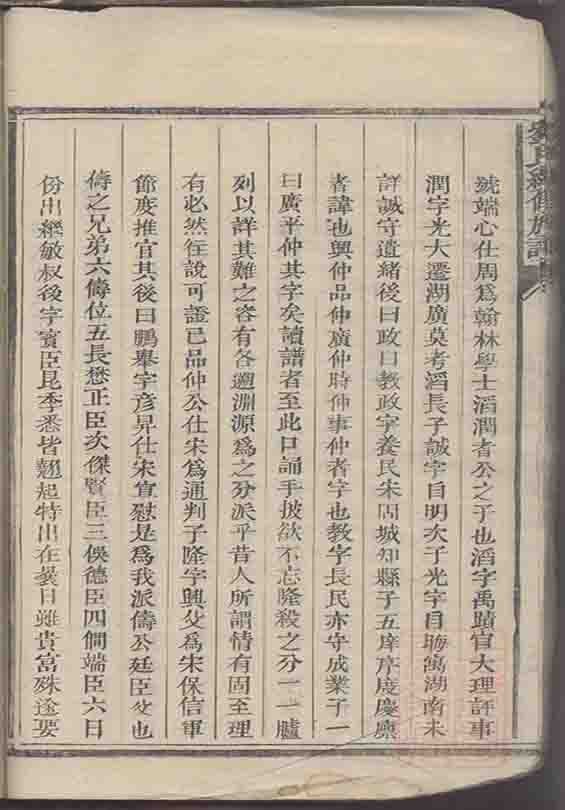 氏續修族譜
號端心仕周爲翰林學士滔潤者公之子也滔字禹蹟官大理評事
潤字光大遷湖廣莫考滔長子誠字自明次子光字自晦寓湖南未
詳誠守遺緒後曰政曰教政字養民宋固城知縣子五庠序度慶廣
者諱也興仲品仲廣仲時仲事仲者字也教字長民亦守成業子一
曰廣平仲其字矣讀譜者至此口誦手披欲不忘隆殺之分一一臚
列以詳其難之容有各遡淵源爲之分派乎昔人所謂情有固至理
有必然往說可證已品仲公仕宋爲通判子隆字興父爲宋保信軍
節度推官其後曰鵬舉字彥昇仕宋宣慰是爲我派儔公廷臣父也
儔之兄弟六儔位五長懋正臣次傑賢臣三俁德臣四僩端臣六曰
份出繼敏叔後字賓臣昆季悉皆翹起特出在曩日雖貴富殊途要